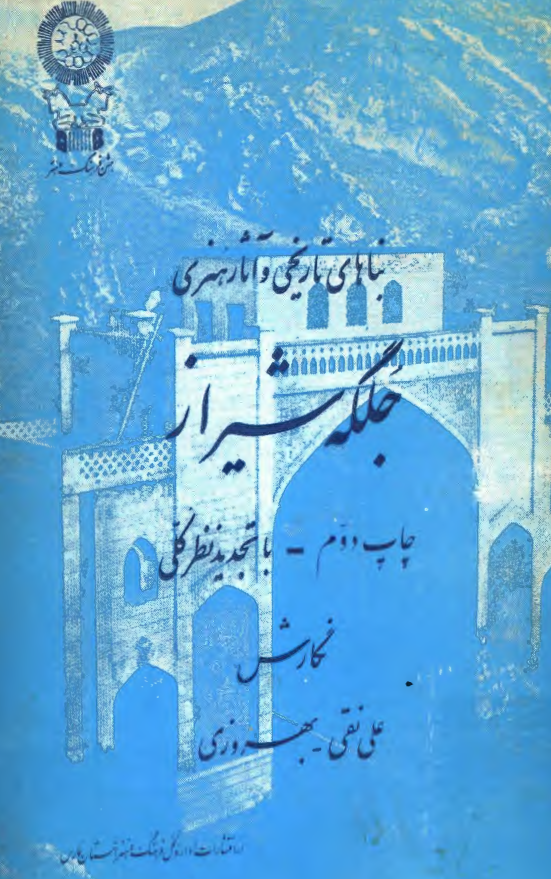 جشن فرهنگ و هنر
بناهای تاریخی و آثار هنری
جلگه شیراز
چاپ دوم - با تجدید نظر کلی
نگارش
علی نقی بهروزی
از انتشارات اداره کل فرهنگ و هنر استان فارس